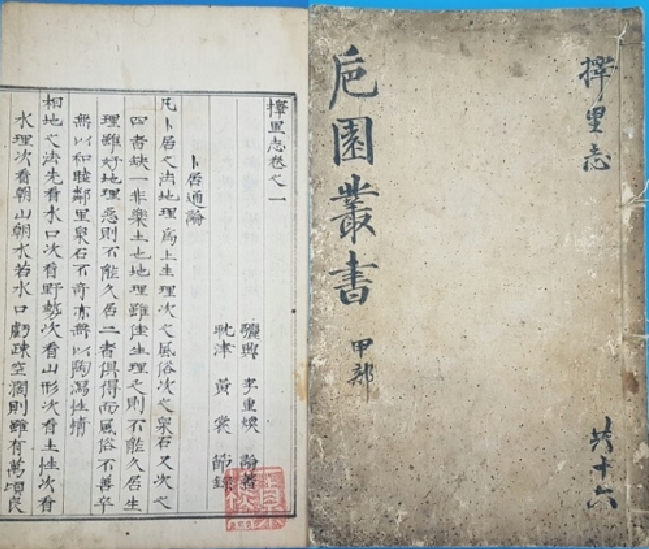 擇里志
共十六
巵園叢書 甲部
擇里志卷之一
驪興 李重煥 論著
耽津 黃裳 節錄
卜居通論
凡卜居之法地理爲上生理次之風俗次之泉石又次之
四者缺一非樂土也地理雖佳生理乏則不能久居生
理雖好地理惡則不能久居二者俱得而風俗不善卒
無以和睦鄰里泉石不奇亦無以陶瀉性情
相地之法先看水口次看野勢次看山形次看土性次看
水理次看朝山朝水若水口虧疎空濶則雖有萬頃良